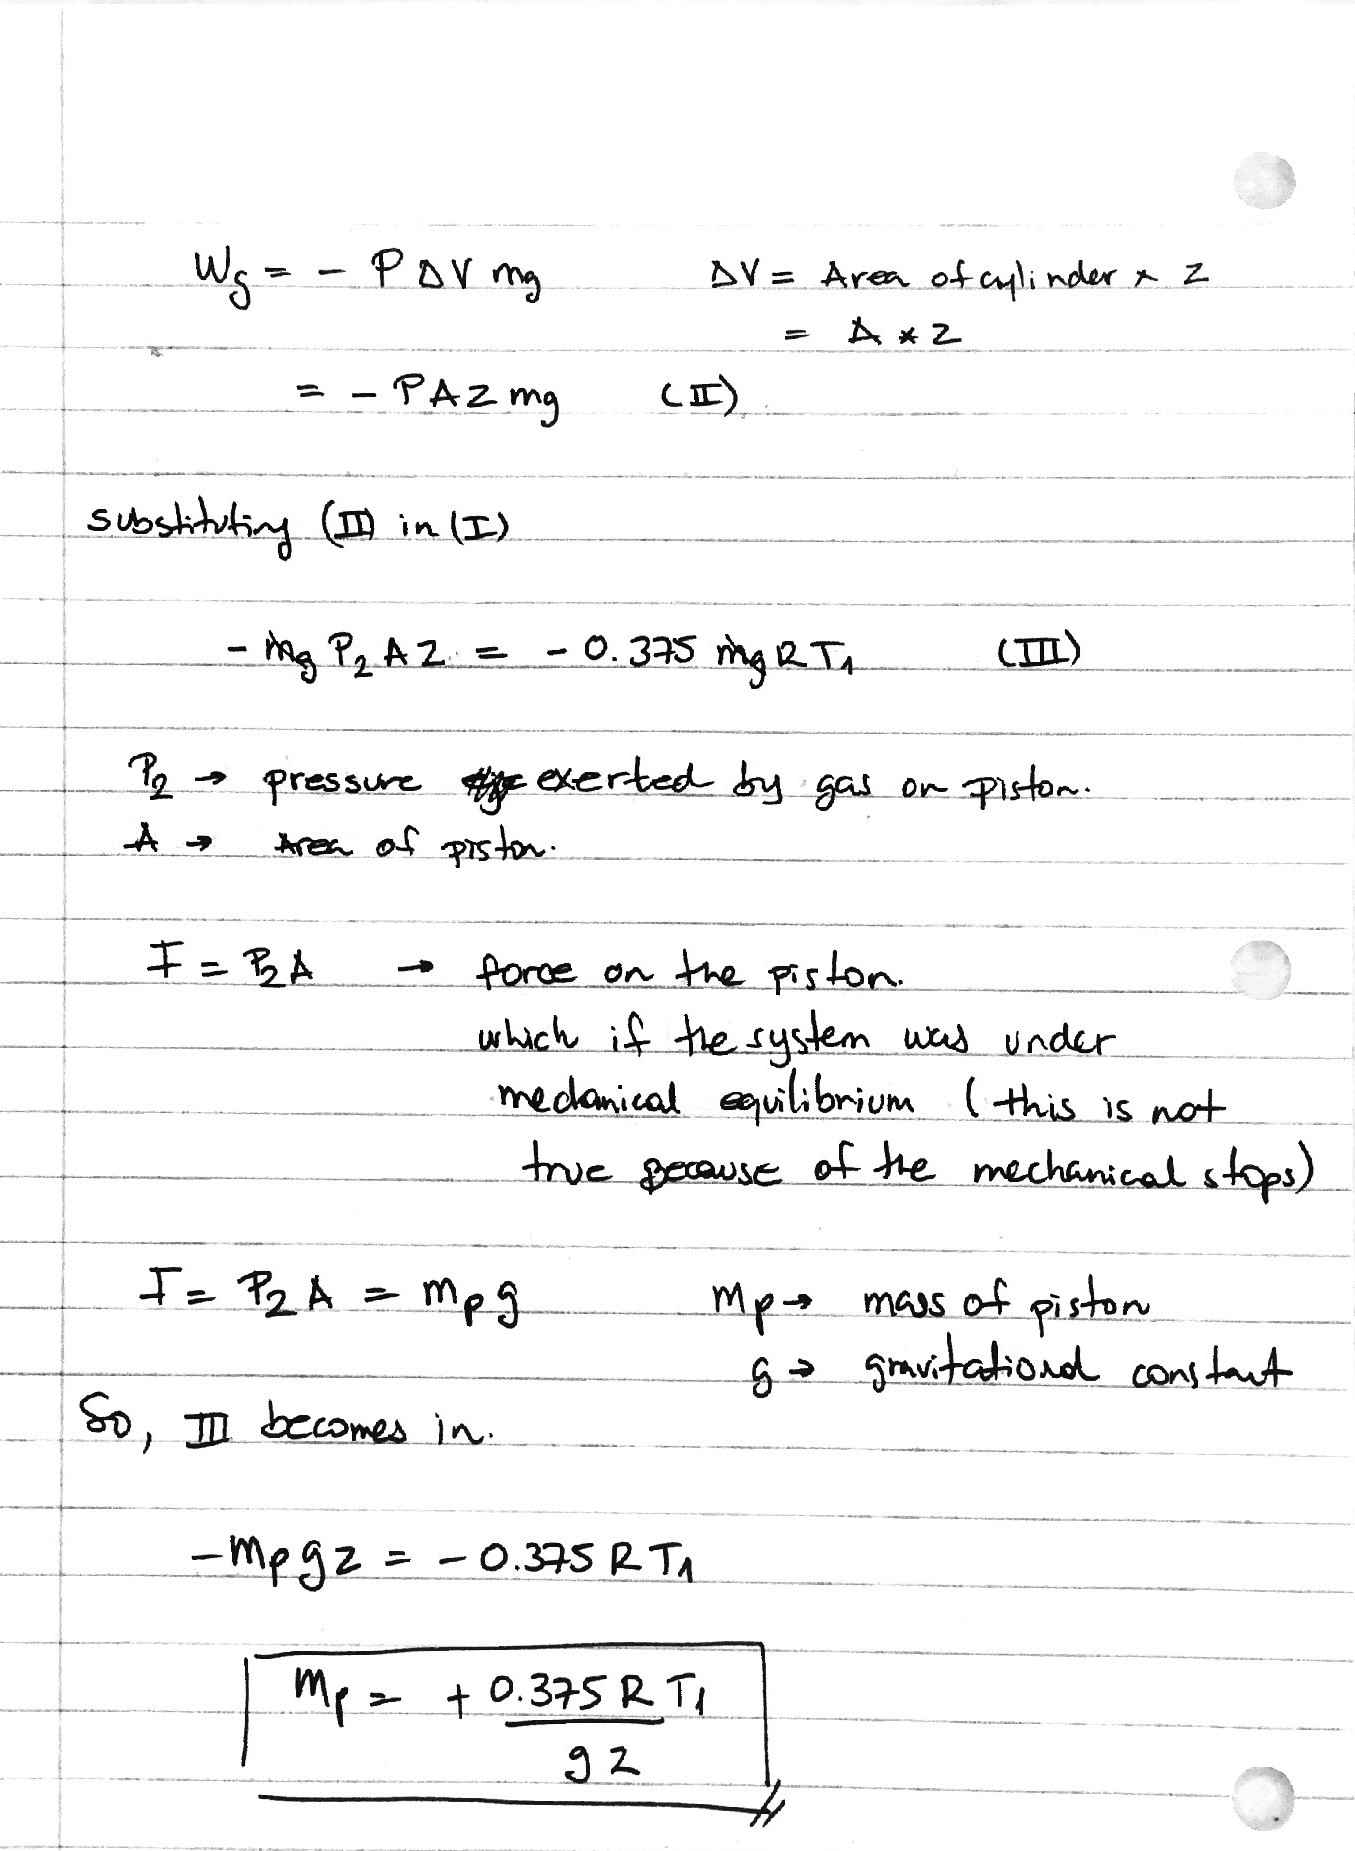 Wg = - P ΔV mg    ΔV = Area of cylinder * z
= A * z
= - PAZ mg    (II)
substituting (II) in (I)
- mg P2 A Z = - 0.375 mg R T1    (III)
P2 → pressure exerted by gas on piston.
A → Area of piston.
F = P2 A → force on the piston.
which if the system was under
mechanical equilibrium (this is not
true because of the mechanical stops)
F = P2 A = mp g    mp → mass of piston
g → gravitational constant
So, III becomes in.
- mp g z = - 0.375 R T1
mp = + 0.375 R T1
g z